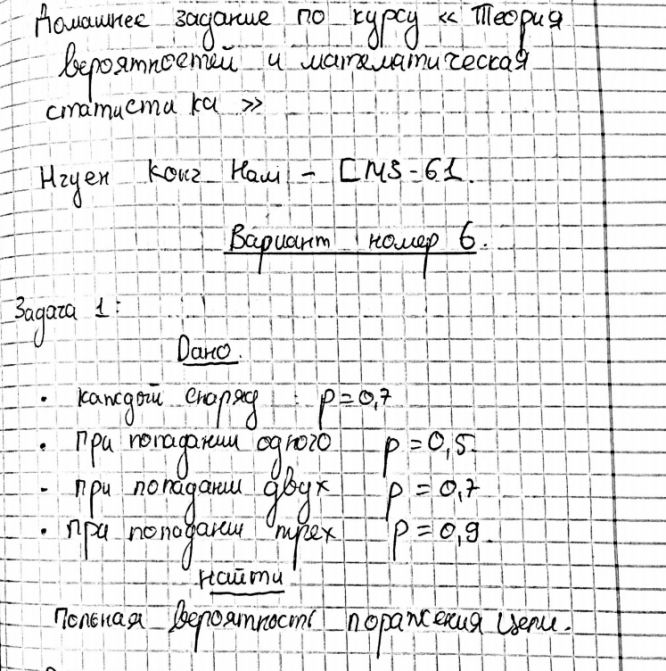 Домашнее задание по курсу « Теория
вероятностей и математическая
статистика »
Нгуен Конг Нам - СМ3-61.
Вариант номер 6.
Задача 1:
Дано.
• каждой снаряд : p=0,7
• При попадании одного p=0,5.
- при попадании двух p=0,7
• при попадании трех p=0,9.
найти
Полная вероятность поражения цели.